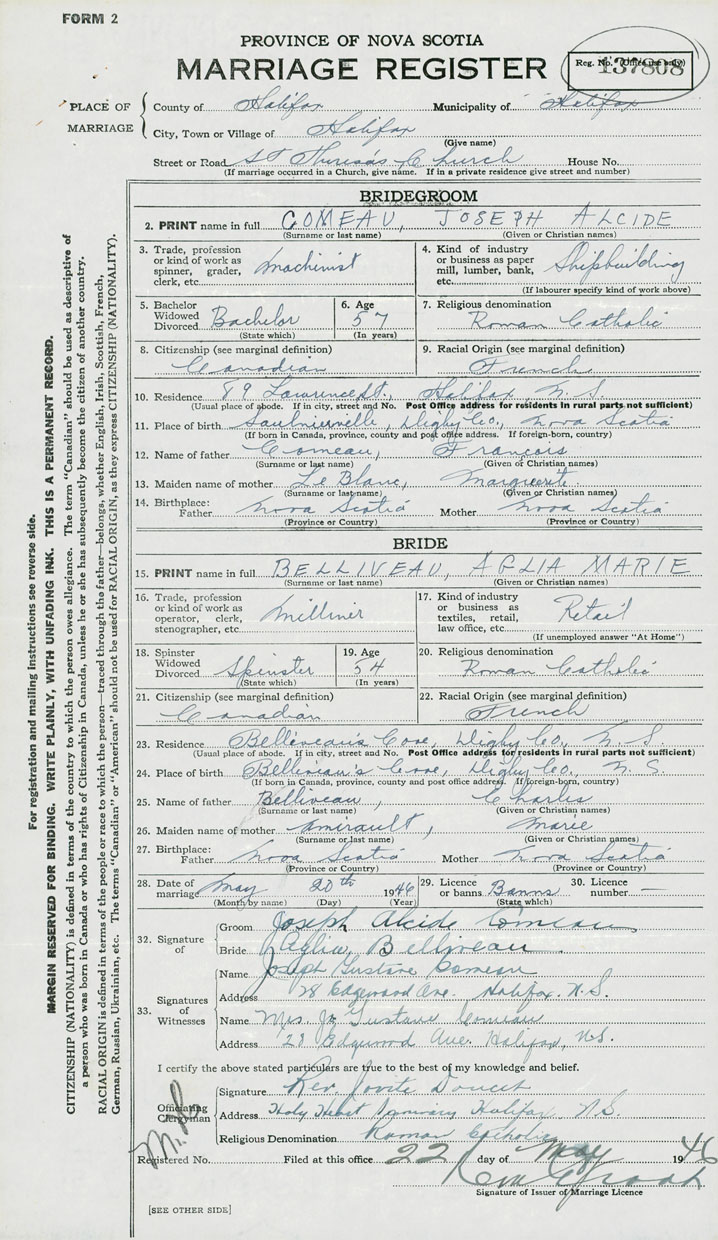 FORM 2
PROVINCE OF NOVA SCOTIA
MARRIAGE REGISTER
Reg. No. (Office use only)
137808
PLACE OF MARRIAGE
County of Halifax Municipality of Halifax
City, Town or Village of Halifax
(Give name)
Street or Road St Theresa's Church House No.
(If marriage occurred in a Church, give name. If in a private residence give street and number)
BRIDEGROOM
2. PRINT name in full COMEAU, JOSEPH ALCIDE
(Surname or last name) (Given or Christian names)
3. Trade, profession or kind of work as spinner, grader, clerk, etc. Machinist
4. Kind of industry or business as paper mill, lumber, bank, etc. Shipbuilding
(If labourer specify kind of work above)
5. Bachelor Widowed Divorced Bachelor
(State which)
6. Age 57
(In years)
7. Religious denomination
Roman Catholic
8. Citizenship (see marginal definition)
Canadian
9. Racial Origin (see marginal definition)
French
10. Residence 89 Lawrence St., Halifax N.S.
(Usual place of abode. If in city, street and No. Post Office address for residents in rural parts not sufficient)
11. Place of birth Saulnierville, Digby Co., Nova Scotia
(If born in Canada, province, county and post office address. If foreign-born, country)
12. Name of father Comeau, Francois
(Surname or last name) (Given or Christian names)
13. Maiden name of mother Le Blanc, Marguerite
(Surname or last name) (Given or Christian names)
14. Birthplace: Father Nova Scotia Mother Nova Scotia
(Province or Country) (Province or Country)
BRIDE
15. PRINT name in full BELLIVEAU, AGLIA MARIE
(Surname or last name) (Given or Christian names)
16. Trade, profession or kind of work as operator, clerk, stenographer, etc. Milliner
17. Kind of industry or business as textiles, retail, law office, etc. Retail
(If unemployed answer "At Home")
18. Spinster Widowed Divorced Spinster
(State which)
19. Age 54
(In years)
20. Religious denomination
Roman Catholic
21. Citizenship (see marginal definition)
Canadian
22. Racial Origin (see marginal definition)
French
23. Residence Belliveau's Cove, Digby Co., N.S.
(Usual place of abode. If in city, street and No. Post Office address for residents in rural parts not sufficient)
24. Place of birth Belliveau's Cove, Digby Co., N.S.
(If born in Canada, province, county and post office address. If foreign-born, country)
25. Name of father Belliveau, Charles
(Surname or last name) (Given or Christian names)
26. Maiden name of mother Amirault, Marie
(Surname or last name) (Given or Christian names)
27. Birthplace: Father Nova Scotia Mother Nova Scotia
(Province or Country) (Province or Country)
28. Date of marriage May 20th 1946
(Month by name) (Day) (Year)
29. Licence or banns Banns
(State which)
30. Licence number —
32. Signature of
Groom Joseph Alcide Comeau
Bride Aglia Belliveau
33. Signatures of Witnesses
Name Joseph Gustave Comeau
Address 28 Edgewood Ave. Halifax. N.S.
Name Mrs. Jos Gustave Comeau
Address 28 Edgewood Ave. Halifax, N.S.
I certify the above stated particulars are true to the best of my knowledge and belief.
Officiating Clergyman
Signature Rev. Jovite Doucet
Address Holy Heart Halifax N.S.
Religious Denomination Roman Catholic
Registered No. Filed at this office 22 day of May 1946
Signature of Issuer of Marriage Licence
[SEE OTHER SIDE]
For registration and mailing instructions see reverse side.
MARGIN RESERVED FOR BINDING. WRITE PLAINLY, WITH UNFADING INK. THIS IS A PERMANENT RECORD.
CITIZENSHIP (NATIONALITY) is defined in terms of the country to which the person owes allegiance. The term "Canadian" should be used as descriptive of
a person who was born in Canada or who has rights of Citizenship in Canada, unless he or she has subsequently become the citizen of another country.
RACIAL ORIGIN is defined in terms of the people or race to which the person—traced through the father—belongs, whether English, Irish, Scottish, French,
German, Russian, Ukrainian, etc. The terms "Canadian" or "American" should not be used for RACIAL ORIGIN, as they express CITIZENSHIP (NATIONALITY).